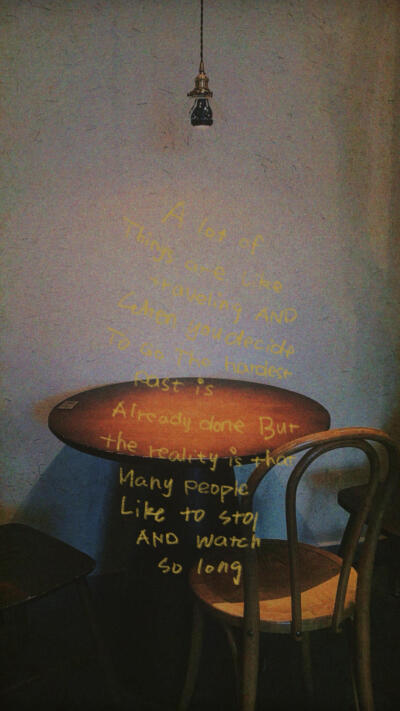 A lot of
Things are Like
traveling AND
when you decide
To go The hardest
Part is
Already done But
the reality is that
Many people
Like to stop
AND watch
so long